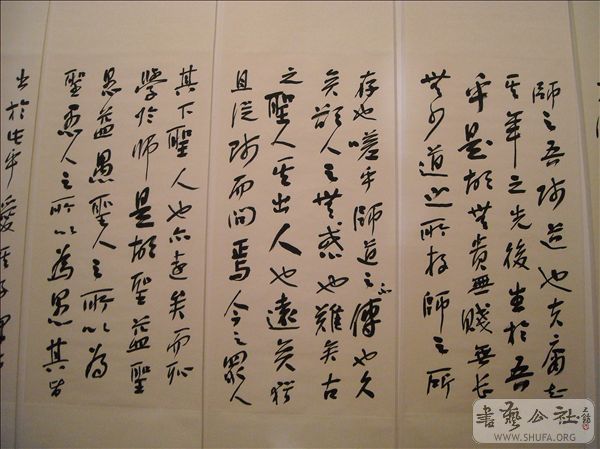 師之吾師道也夫庸知
其年之先後生於吾
乎是故無貴無賤無長
無少道之所存師之所
存也嗟乎師道之不傳也久
矣欲人之無惑也難矣古
之聖人其出人也遠矣猶
且從師而問焉今之眾人
其下聖人也亦遠矣而恥
學於師是故聖益聖
愚益愚聖人之所以為
聖愚人之所以為愚其皆
出於此乎愛其子擇
書藝公社
WWW.SHUFA.ORG